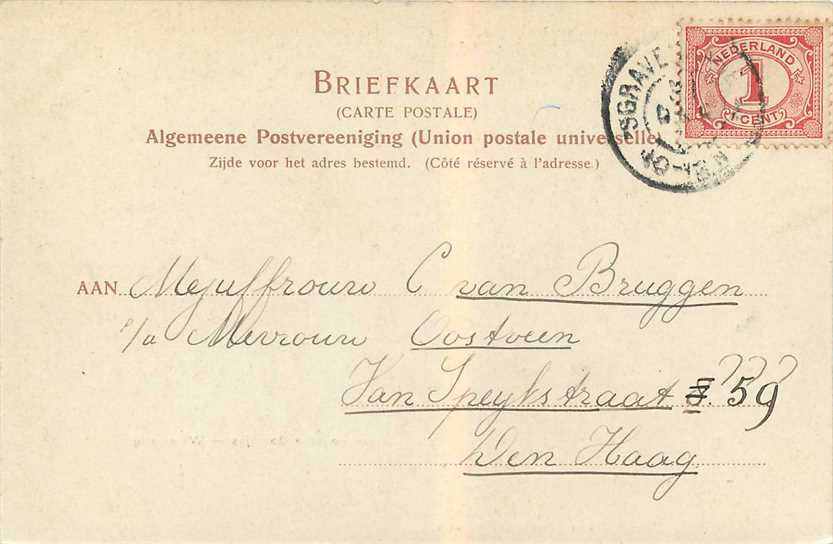 BRIEFKAART
(CARTE POSTALE)
Algemeene Postvereeniging (Union postale universelle)
Zijde voor het adres bestemd. (Côté réservé à l'adresse.)
NEDERLAND
1
1 CENT
'SGRAVE
AAN Mejuffrouw C van Bruggen
p/a Mevrouw Oostveen
Van Speykstraat 59
???
Den Haag